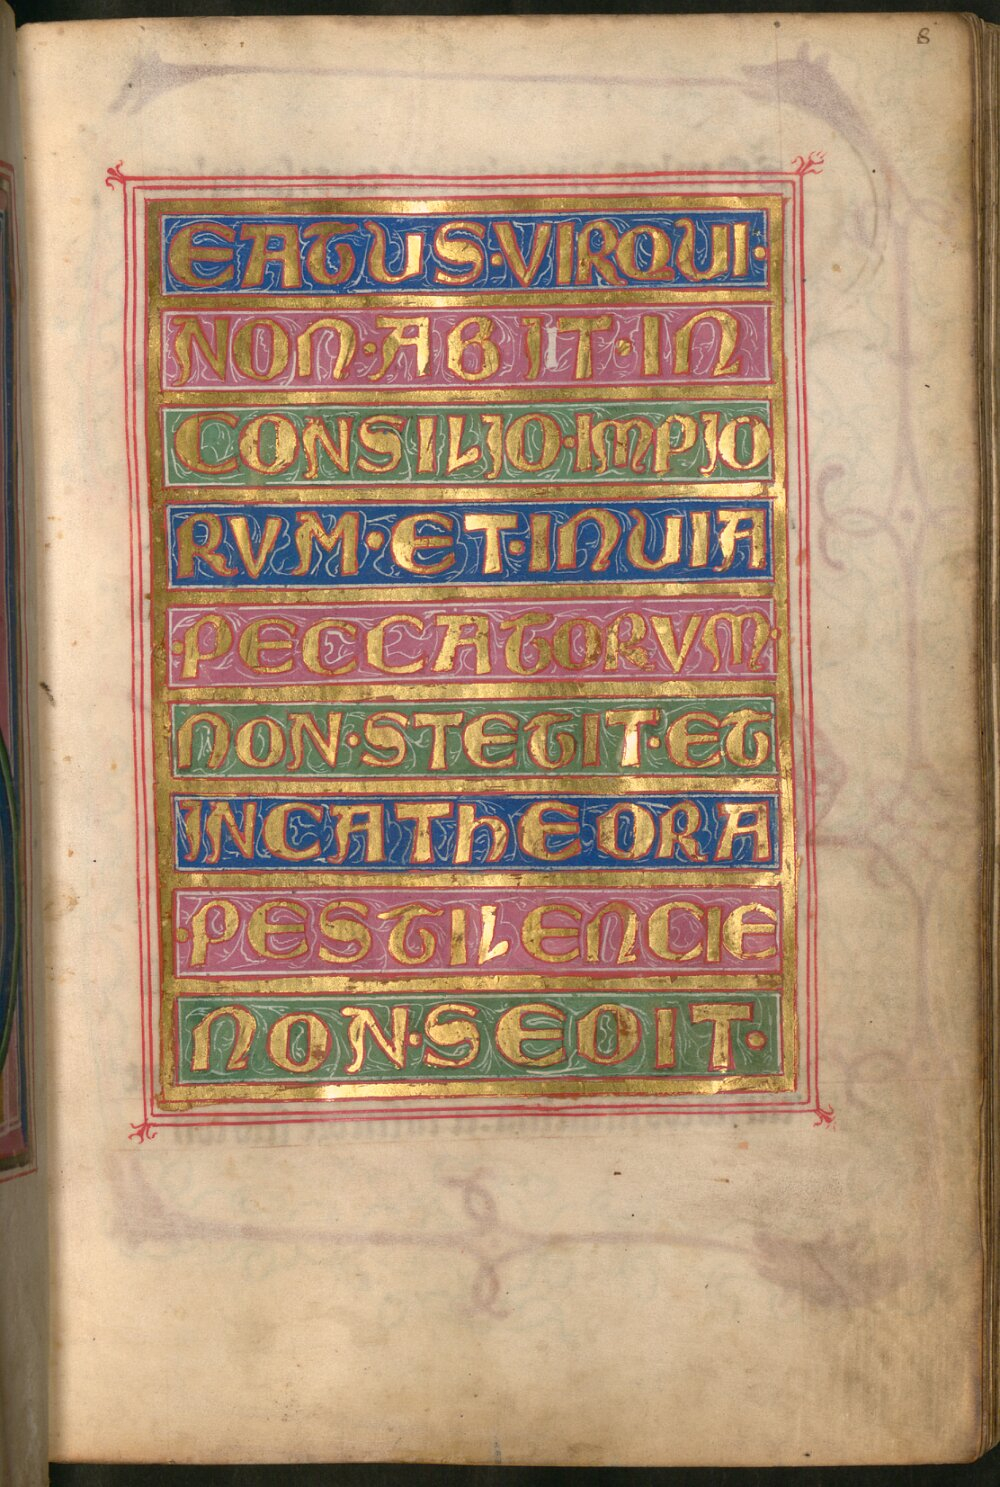 8
EATUS·VIRQUI·
NON·ABIIT·IN
CONSILIO·IMPIO
RVM·ET·INUIA
·PECCATORVM·
NON·STETIT·ET
INCAThEDRA
·PESTILENCIE
NON·SEDIT·